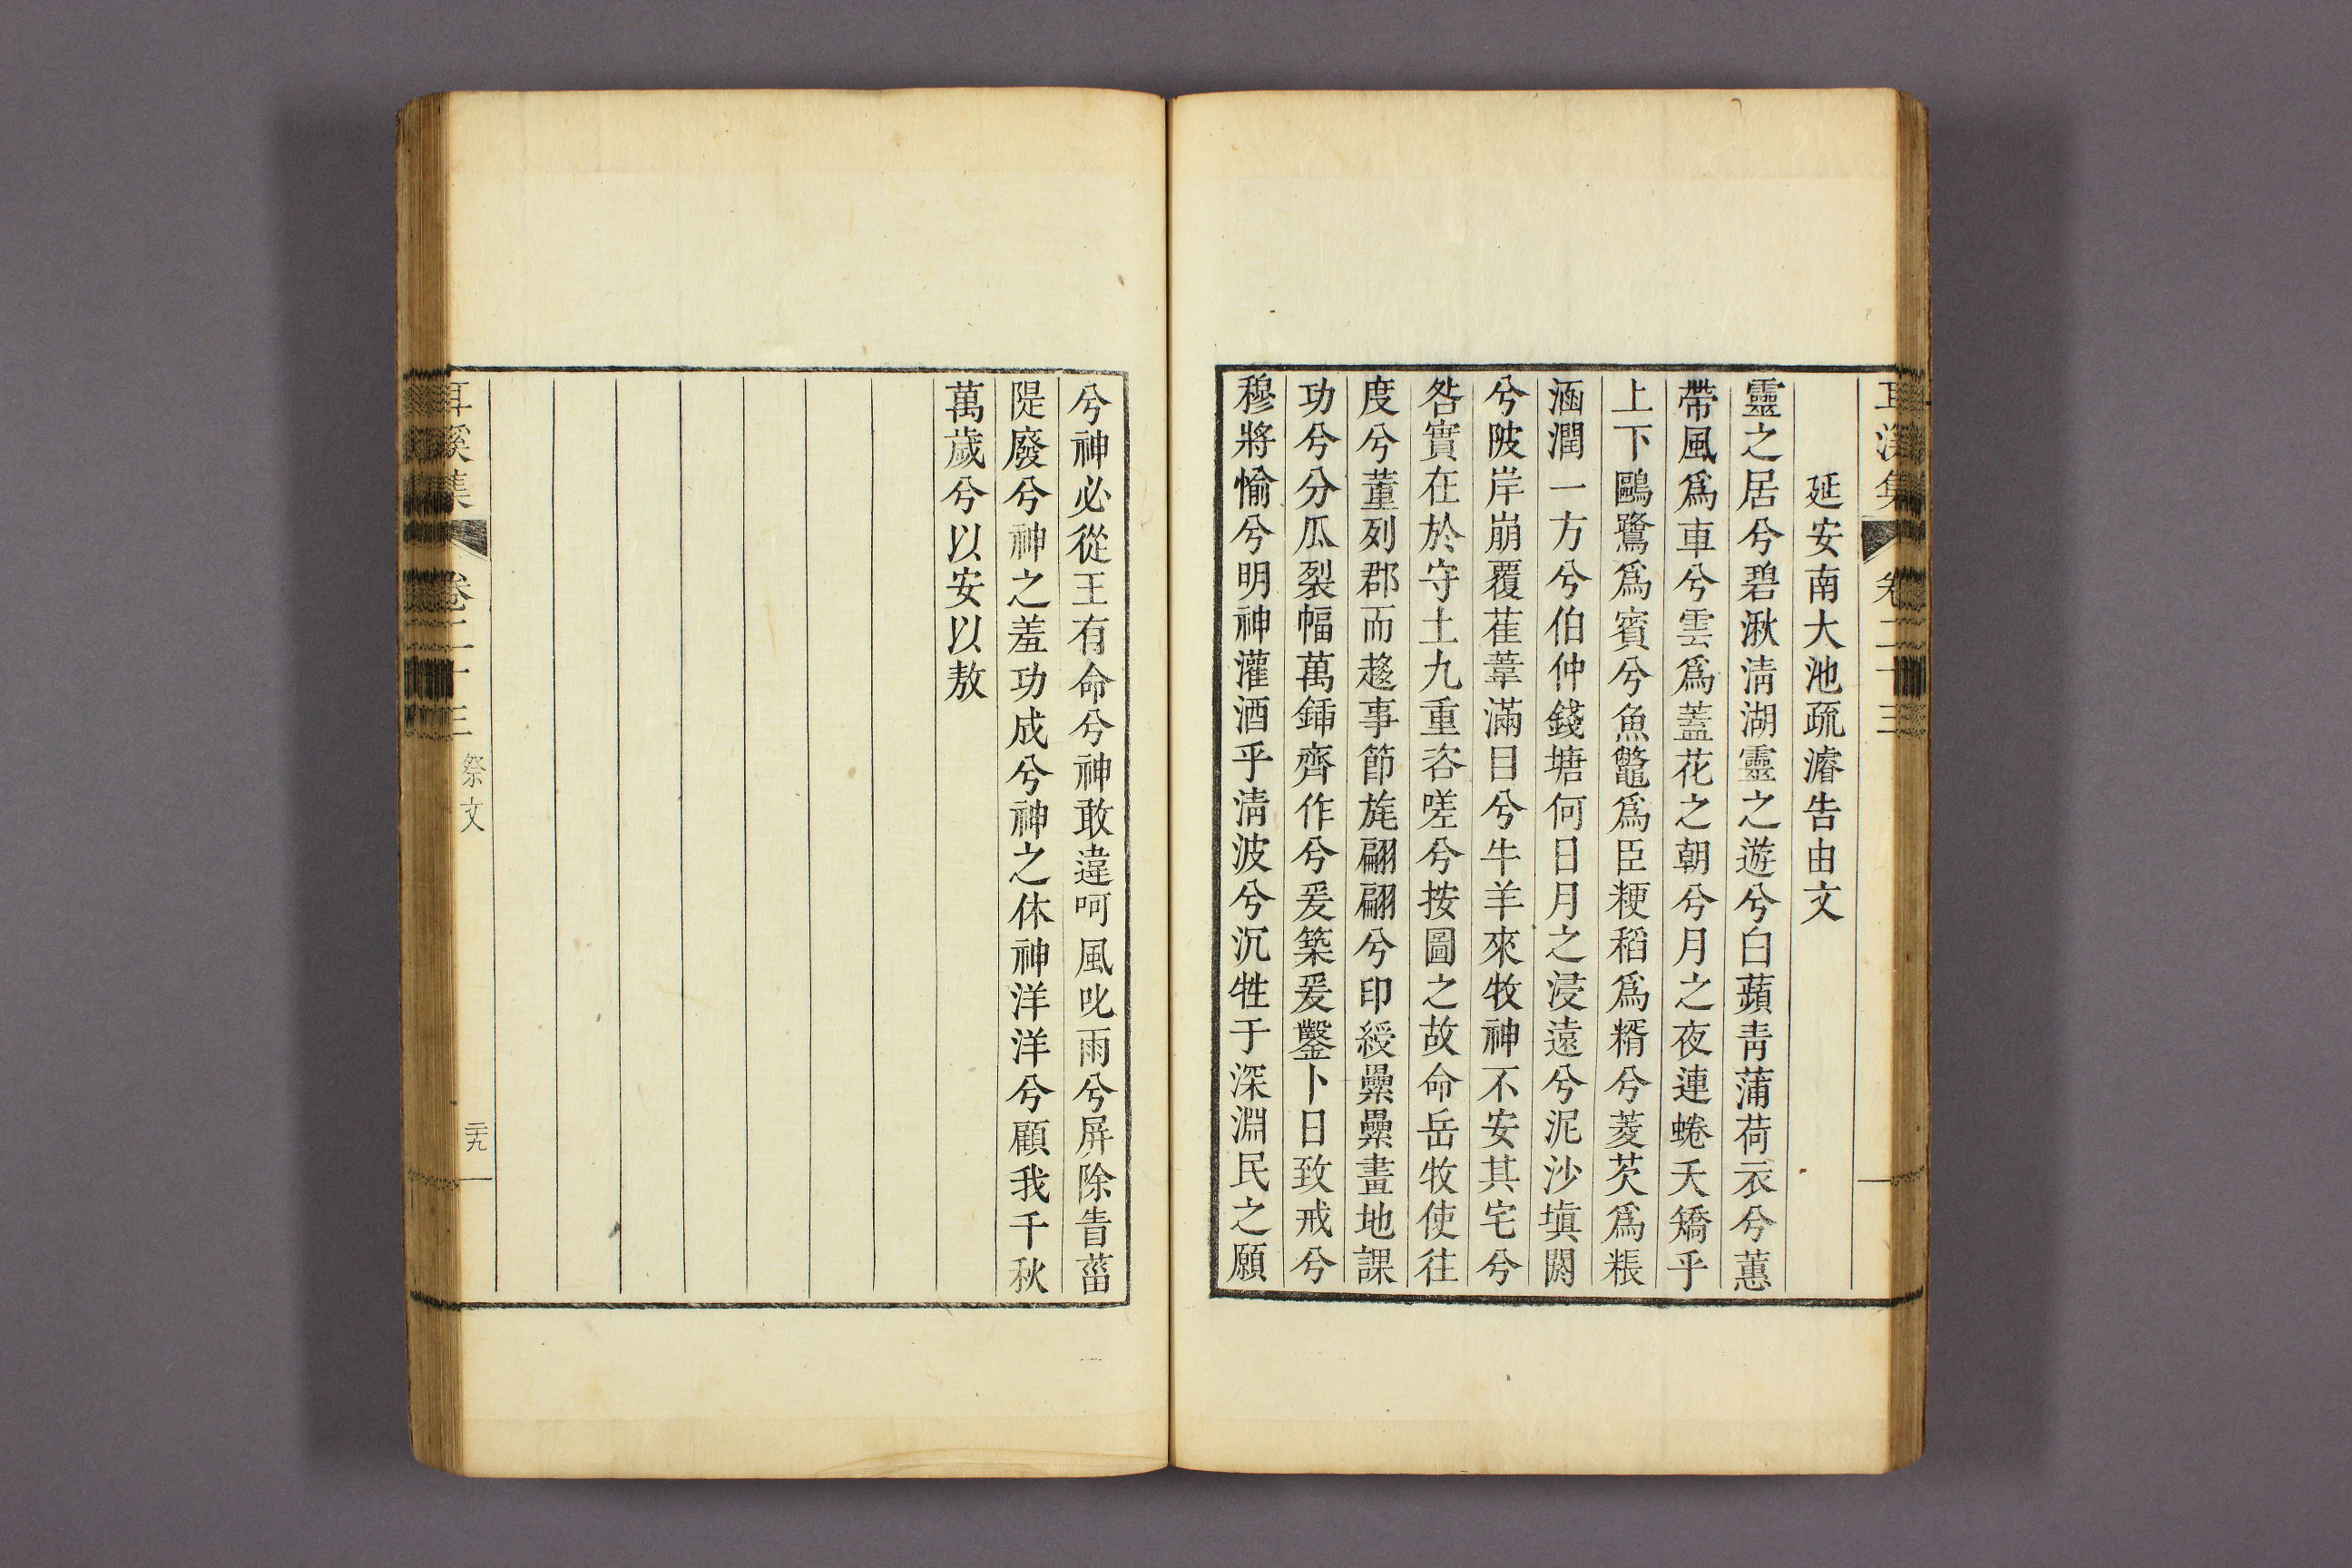 耳溪集 卷二十三
延安南大池疏濬告由文
靈之居兮碧湫淸湖靈之遊兮白蘋靑蒲荷衣兮蕙
帶風爲車兮雲爲蓋花之朝兮月之夜連蜷夭矯乎
上下鷗鷺爲賓兮魚鼈爲臣粳稻爲糈兮菱芡爲粻
涵潤一方兮伯仲錢塘何日月之浸遠兮泥沙塡閼
兮陂岸崩覆萑葦滿目兮牛羊來牧神不安其宅兮
咎實在於守土九重咨嗟兮按圖之故命岳牧使往
度兮董列郡而趍事節旄翩翩兮印綬纍纍畫地課
功兮分瓜裂幅萬鍤齊作兮爰築爰鑿卜日致戒兮
穆將愉兮明神灌酒乎淸波兮沉牲于深淵民之願
兮神必從王有命兮神敢違呵風叱雨兮屛除眚菑
隄廢兮神之羞功成兮神之休神洋洋兮顧我千秋
萬歲兮以安以敖
耳溪集 卷二十三 祭文 二十九